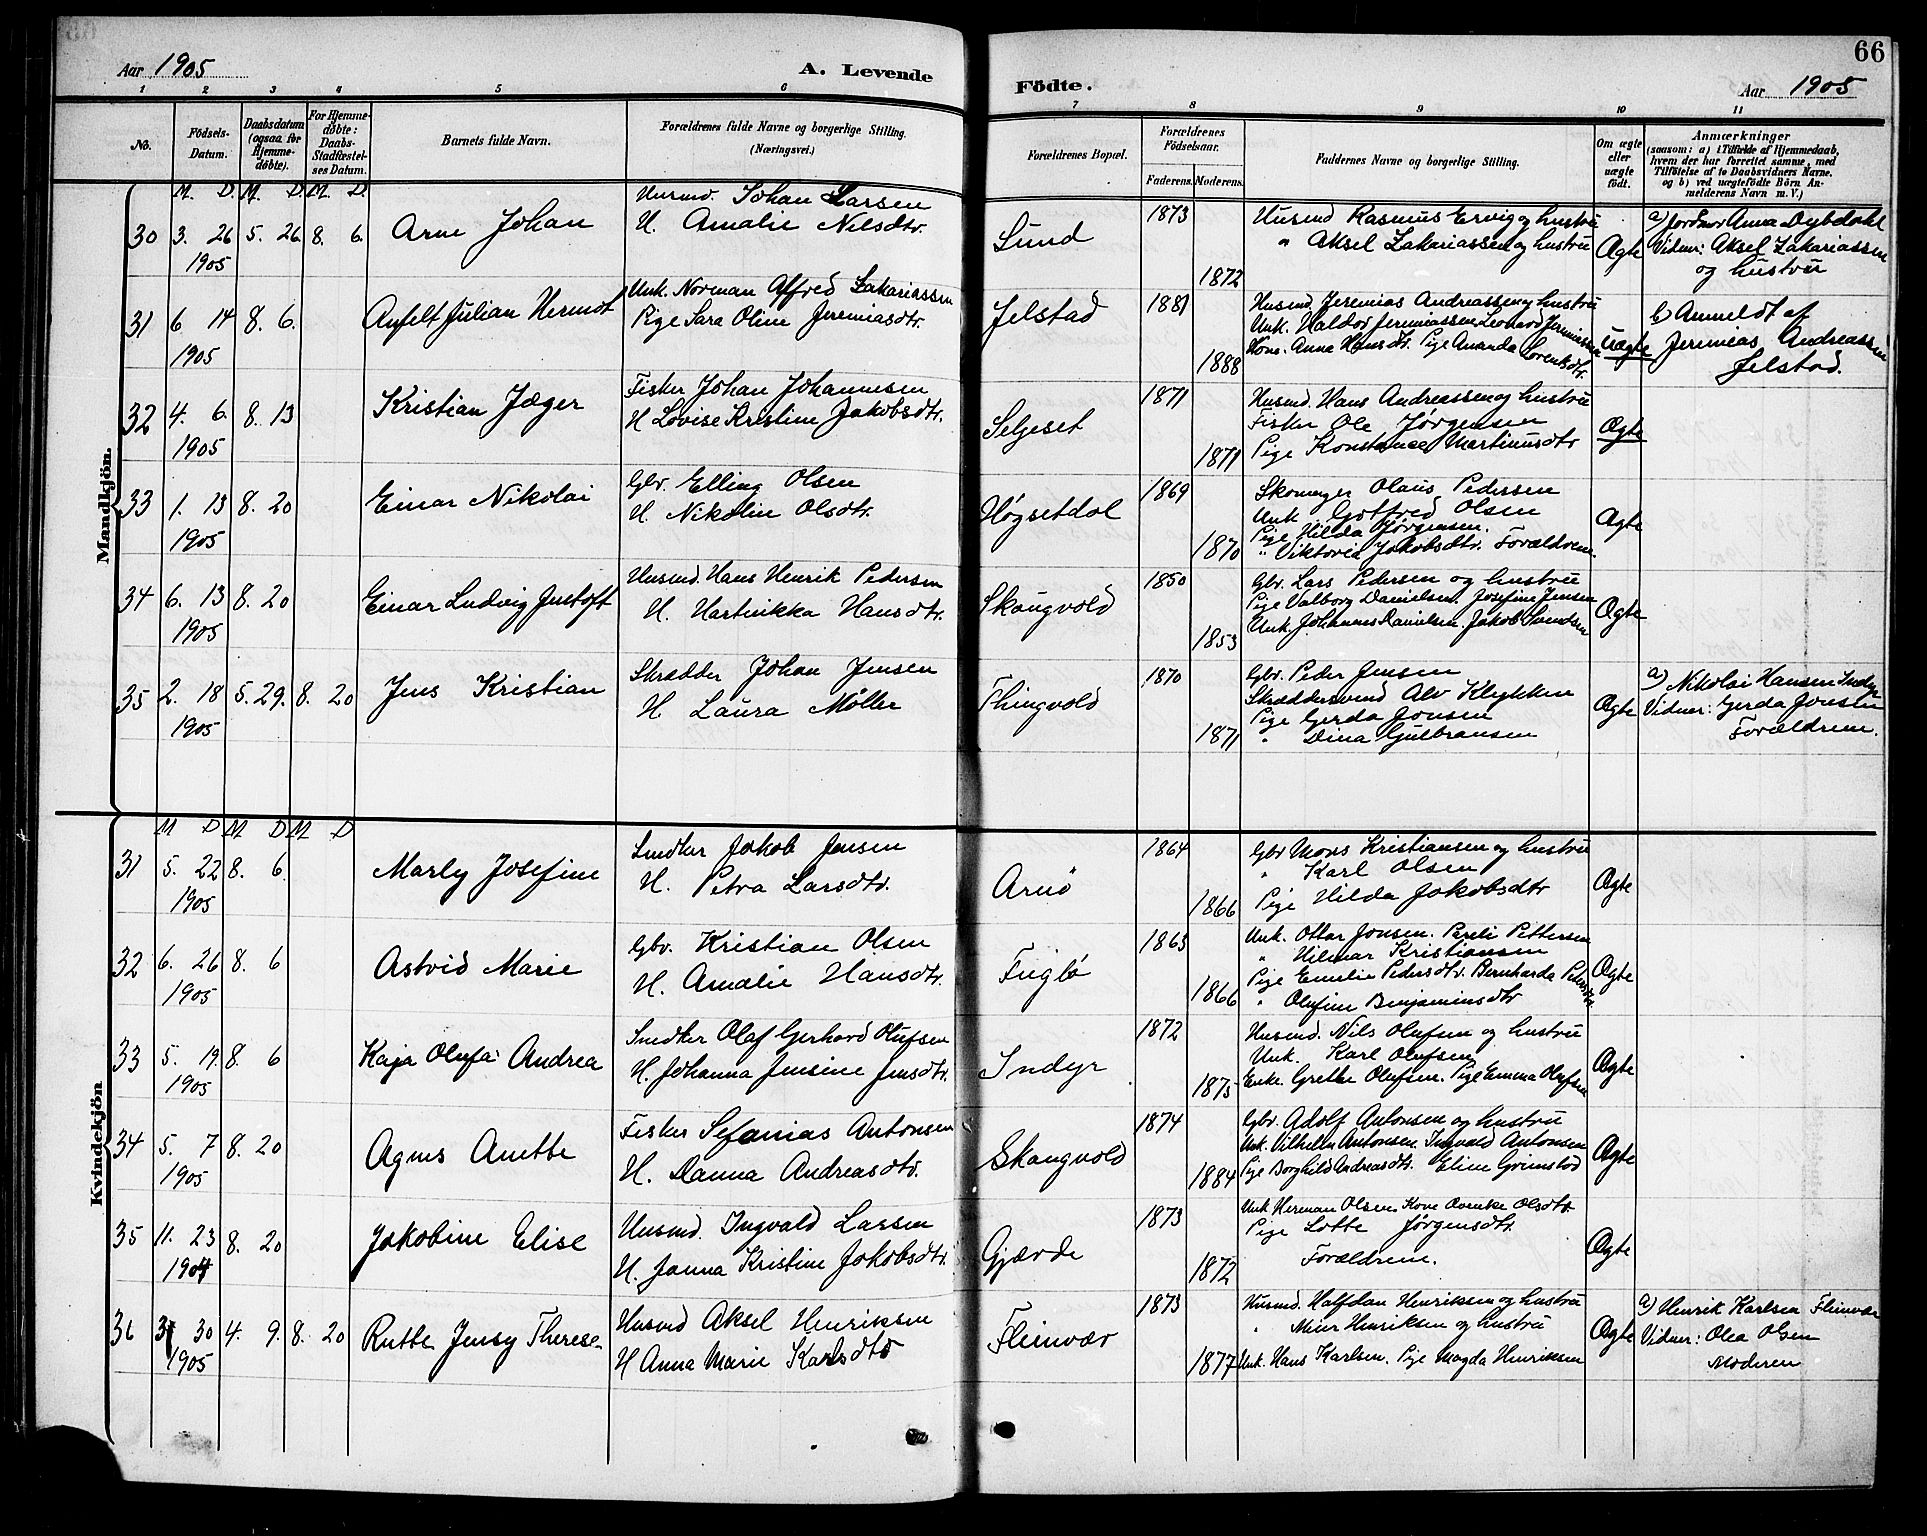 Aar 1905
A. Levende
Födte.
66
Aar 1905
1 2 3 4 5 6 7 8 9 10 11
No.
Födsels-
Datum.
Daabsdatum
(ogsaa for
Hjemme-
døbte).
For Hjemme-
døbte:
Daabs-
Stadfæstel-
ses Datum.
Barnets fulde Navn.
Forældrenes fulde Navne og borgerlige Stilling.
(Næringsvei.)
Forældrenes Bopæl.
Forældrenes
Födselsaar.
Faderens. Moderens.
Faddernes Navne og borgerlige Stilling.
Om ægte
eller
uægte
født.
Anmærkninger
(saasom: a) i Tilfælde af Hjemmedaab,
hvem der har forrettet samme, med
Tilföielse af to Daabsvidners Navne.
og b) ved uægtefödte Börn An-
melderens Navn m. V.)
Mandkjön.
M. D. M. D. M. D.
30 3. 26 5. 26. 8. 6.
1905
Arne Johan
Husmd. Johan Larsen
H. Amalie Nilsdtr.
Lund
1873
1872
Husmd Rasmus Ervig og hustru
" Aksel Zakariassen og hustru
Ægte
a) Jordmor Anna Dybdahl
Vidner: Aksel Zakariassen
og hustru
31 6 14 8. 6.
1905
Anfelt Julian Hermot
Unk. Norman Alfred Zakariassen
Pige Sara Oline Jeremiasdtr.
Jelstad
1881
1888
Husmd. Jeremias Andreassen og hustru
Unk. Haldor Jeremiassen Leonard Jeremiassen
Kone. Anna Hansdtr. Pige Amanda Lorentsdtr.
Uægte
b) Anmeldt af
Jeremias Andreassen
Jelstad.
32 4. 6. 8. 13
1905
Kristian Jæger
Fisker Johan Johannesen
H Lovise Kristine Jakobsdtr.
Selgeset
1871
1871
Husmd. Hans Andreassen og hustru
Fisker Ole Jørgensen
Pige Konstance Martinusdtr
Ægte
33 1. 13 8. 20
1905
Einar Nikolai
Gbr. Elling Olsen
H. Nikolin Olsdtr.
Høgsetdal
1869
1870
Skomager Olaus Pedersen
Unk Gotfred Olsen
Pige Hilda Jørgensen.
" Viktoria Jakobsdtr. Forældrene.
Ægte
34 6. 13 8. 20
1905
Einar Ludvig Justoft
Husmd. Hans Henrik Pedersen
H. Hartvikka Hansdtr.
Skaugvold
1850
1853
Gbr. Lars Pedersen og hustru
Pige Valborg Danielsen. Josefine Jensen
Unk. Johannes Danielsen. Jakob
Ægte
35 2. 18 5. 29. 8. 20
1905
Jens Kristian
Skrædder Johan Jensen
H. Laura Møller
Thingvold
1870
1871
Gbr. Peder Jensen
Skræddersvend Alv Klykken
Pige Gerda Jonsen
" Dina Gulbransen
Ægte
a) Nikolai Hansen Indyr
Vidner: Gerda Jonsen
Forældrene.
Kvindekjön
M D M D M D
31 5. 22 8. 6.
1905
Marly Josefine
Snedker Jakob Jensen
H. Petra Larsdtr.
Arnø
1864
1866
Gbr Mons Kristiansen og hustru
" Karl Olsen
Pige Hilda Jakobsdtr
Ægte
32 6. 26 8. 6
1905
Astrid Marie
Gbr. Kristian Olsen
H. Amalie Hansdtr.
Fuglø
1863
1866
Unk. Ottar Jonsen. Pareli Pettersen
" Hilmar Kristiansen
Pige Emelie Pedersdtr. Bernharda Pedersdtr
" Olufine Benjaminsdtr
Ægte
33 5. 19. 8. 6
1905
Kaja Olufa Andrea
Snedker Olaf Gerhard Olufsen
H. Johanna Jensine Jensdtr.
Indyr
1872
1875
Husmd. Nils Olufsen og hustru
Unk. Karl Olufsen
Enke. Grethe Olufsen. Pige Emma Olufsen
Ægte
34 5. 7 8. 20
1905
Agnes Anette
Fisker Sefanias Antonsen
H. Danna Andreasdtr.
Skaugvold
1874
1884
Gbr. Adolf Antonsen og hustru
Unk. Vilhelm Antonsen. Ingvald Antonsen
Pige Borghild Andreasdtr. Eline Grimstad
Ægte
35 11. 23 8. 20
1904
Jakobine Elise
Husmd. Ingvald Larsen
H. Janna Kristine Jakobsdtr.
Gjærde
1873
1872
Unk Herman Olsen. Kone Olsdtr
Pige Lotte Jørgensdtr.
Forældrene.
Ægte
36 3 30 4. 9. 8. 20
1905
Ruthe Jensy Therese
Husmd Aksel Henriksen
H Anna Marie Karlsdtr
Fleinvær
1873
1877
Husmd. Halfdan Henriksen og hustru
" Meier Henriksen og hustru
Unk. Hans Karlsen. Pige Magda Henriksen
Ægte
a) Henrik Karlsen Fleinvær
Vidner: Olea Olsen
Moderen